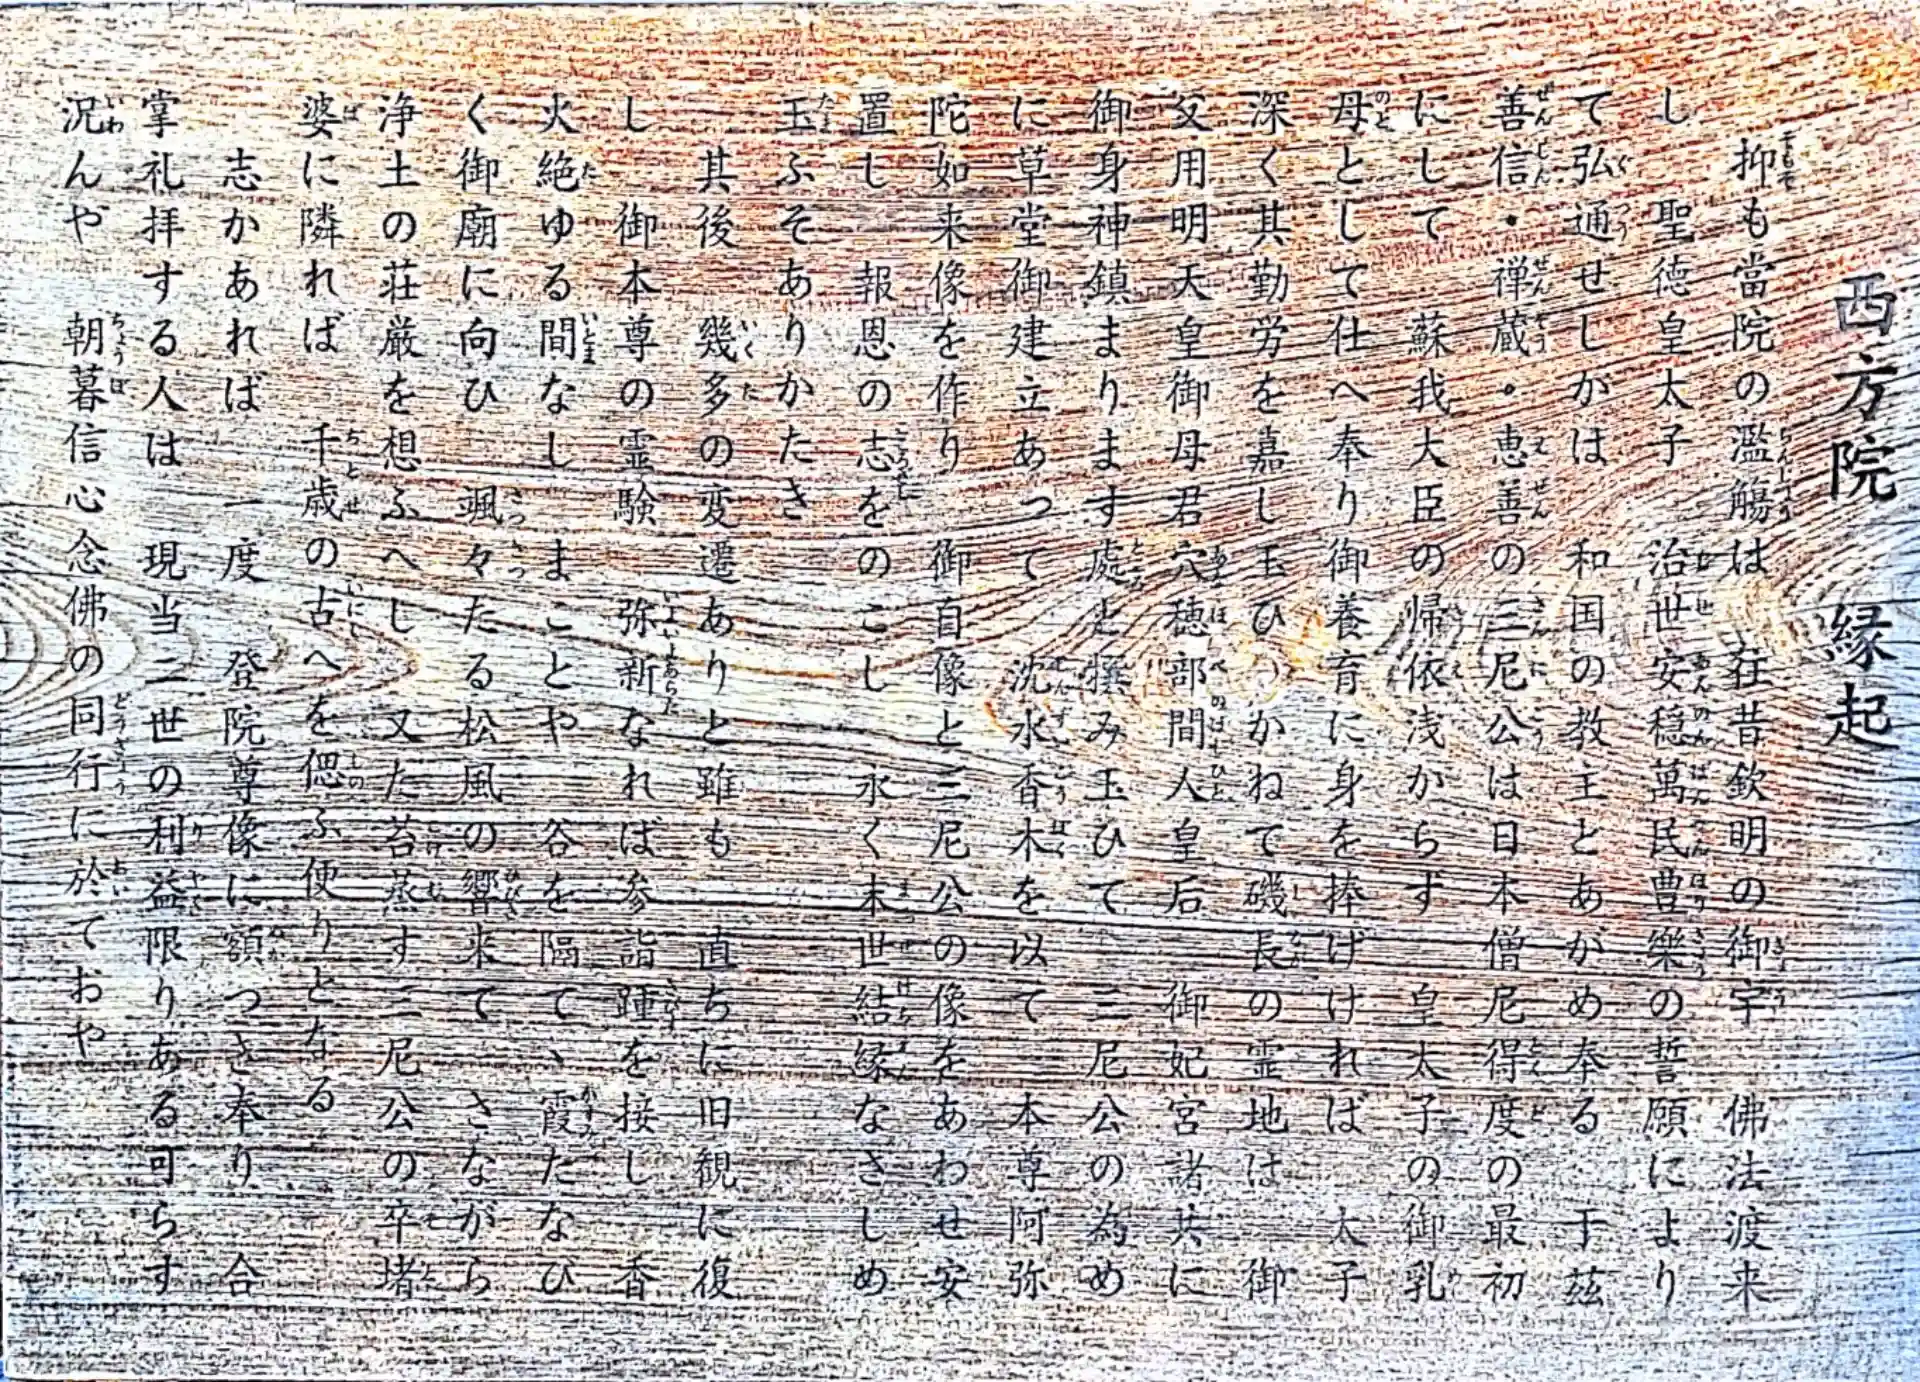 西方院 縁起
抑も當院の濫觴は 在昔欽明の御宇 佛法渡来
し 聖徳皇太子 治世安穏萬民豊樂の誓願により
て弘通せしかは 和国の教主とあがめ奉る 于茲
善信・禅蔵。恵善の三尼公は日本僧尼得度の最初
にして 蘇我大臣の帰依浅からず 皇太子の御乳
母として仕へ奉り御養育に身を捧げければ 太子
深く其勤労を嘉し玉ひつかねて磯長の霊地は 御
父用明天皇御母君穴穂部間人皇后 御妃宮諸共に
御身神鎮まります處と撰み玉ひて 三尼公の為め
に草堂御建立あって 沈水香木を以て 本尊阿弥
陀如来像を作り 御自像と三尼公の像をあわせ安
置し 報恩の志をのこし 永く末世結縁なさしめ
玉ふそありかたさ
其後 幾多の変遷ありと雖も 直ちに旧観に復
し 御本尊の霊験 弥新なれば参詣踵を接し 香
火絶ゆる間なし まことや 谷を隔て、霞たなび
く御廟に向ひ 颯々たる松風の響来て さながら
浄土の荘厳を想ふへし 又た苔蒸す三尼公の卒堵
婆に隣れば 千歳の古へを偲ふ便りとなる
志かあれば 一度 登院尊像に額つき奉り 合
掌礼拝する人は 現当二世の利益限りある可らす
況んや 朝暮信心念佛の同行に於ておや